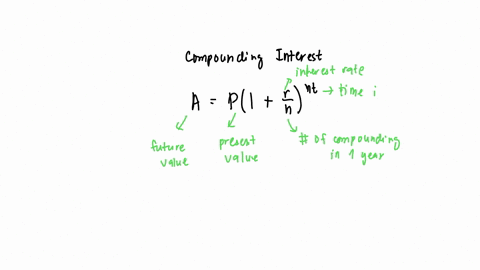 Compounding Interest
interest rate
A = P(1 + r/n)^nt → time i
future value
present value
# of compounding in 1 year